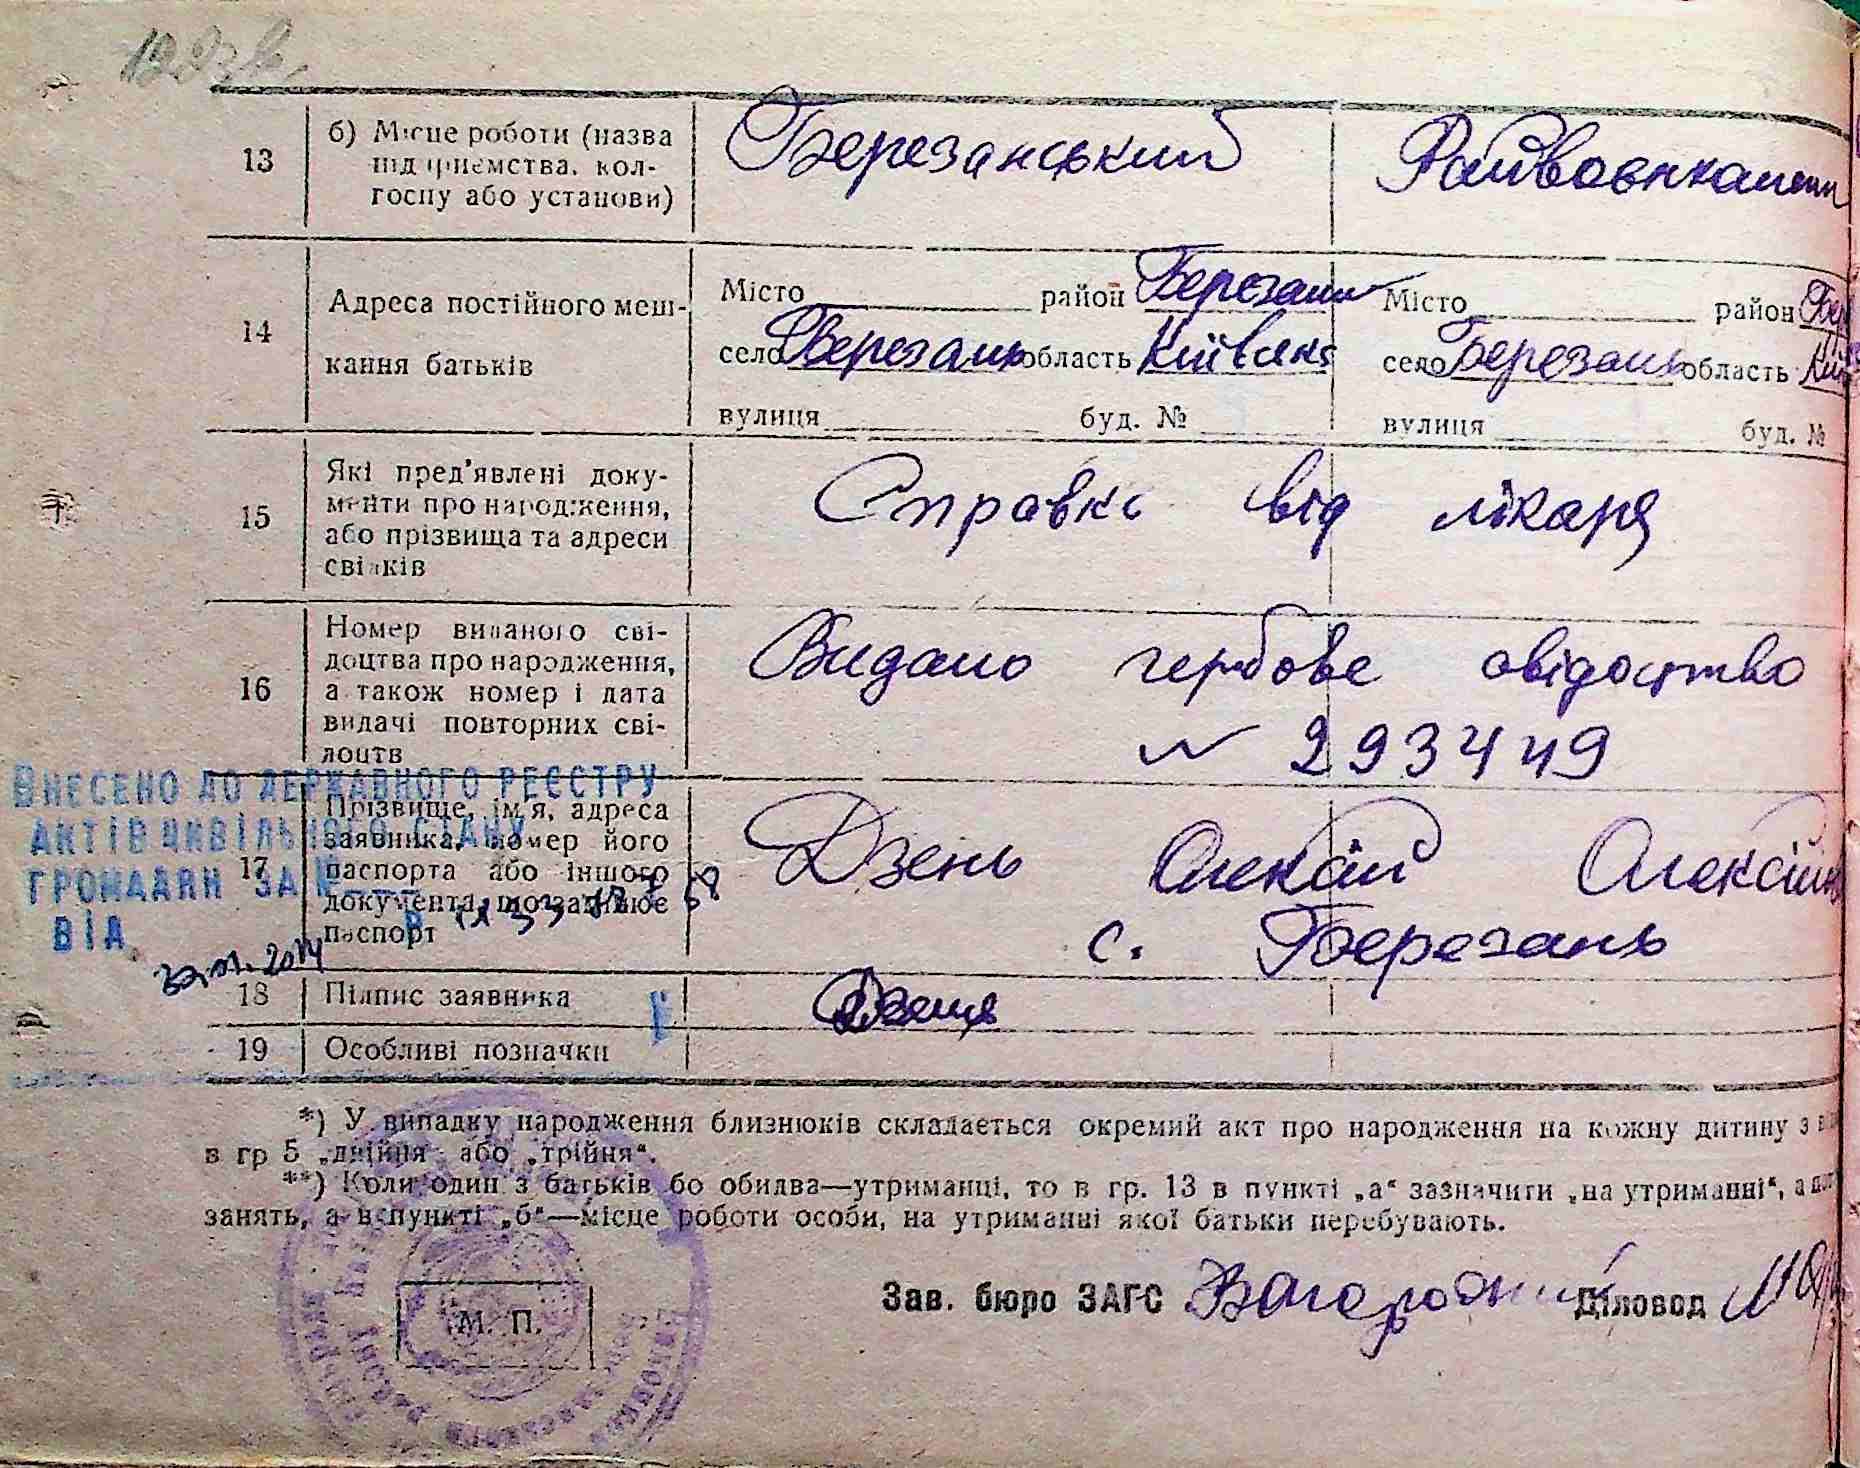 13
б) Місце роботи (назва
підприємства, кол-
госпу або установи)
Березанський Райвоєнкомат
14
Адреса постійного меш-
кання батьків
Місто район Березанс Місто район Бер
село Березань область Київська село Березань область Киї
вулиця буд. № вулиця буд. №
15
Які пред'явлені доку-
менти про народження,
або прізвища та адреси
свідків
Справка від лікаря
16
Номер виданого сві-
доцтва про народження,
а також номер і дата
видачі повторних сві-
доцтв
Видано гербове свідоцтво
№ 293449
ВНЕСЕНО ДО ДЕРЖАВНОГО РЕЄСТРУ
АКТІВ ЦИВІЛЬНОГО СТАНУ
ГРОМАДЯН ЗА №
ВІД
17
Прізвище, ім'я, адреса
заявника, номер його
паспорта або іншого
документа, що заміняє
паспорт
Дзень Олексій Олексійов
с. Березань
18
Підпис заявника
19
Особливі позначки
*) У випадку народження близнюків складається окремий акт про народження на кожну дитину з
в гр 5 „двійня" або „трійня".
**) Коли один з батьків бо обидва—утриманці, то в гр. 13 в пункті „а" зазначити „на утриманні", а
занять, а в пункті „б"—місце роботи особи, на утриманні якої батьки перебувають.
Зав. бюро ЗАГС Діловод
М. П.